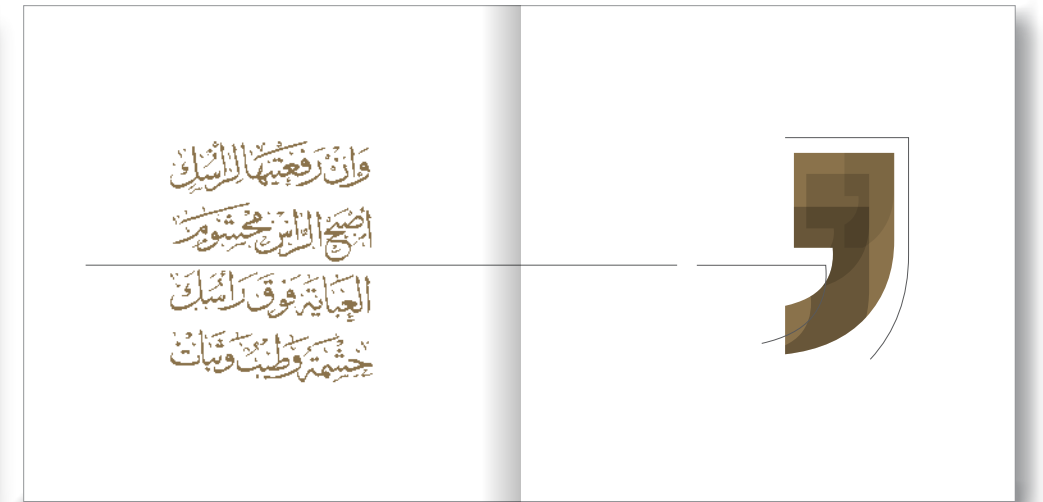 وَإنْ رَفَعْتِيْهَا لِرَأْسِكْ
أصْبَحْ الرَّاسْ مَحْشُومْ
العَبَايَةْ فَوقْ رَأسِكْ
حِشْمَةْ وَطِيبْ وَثَبَاتْ